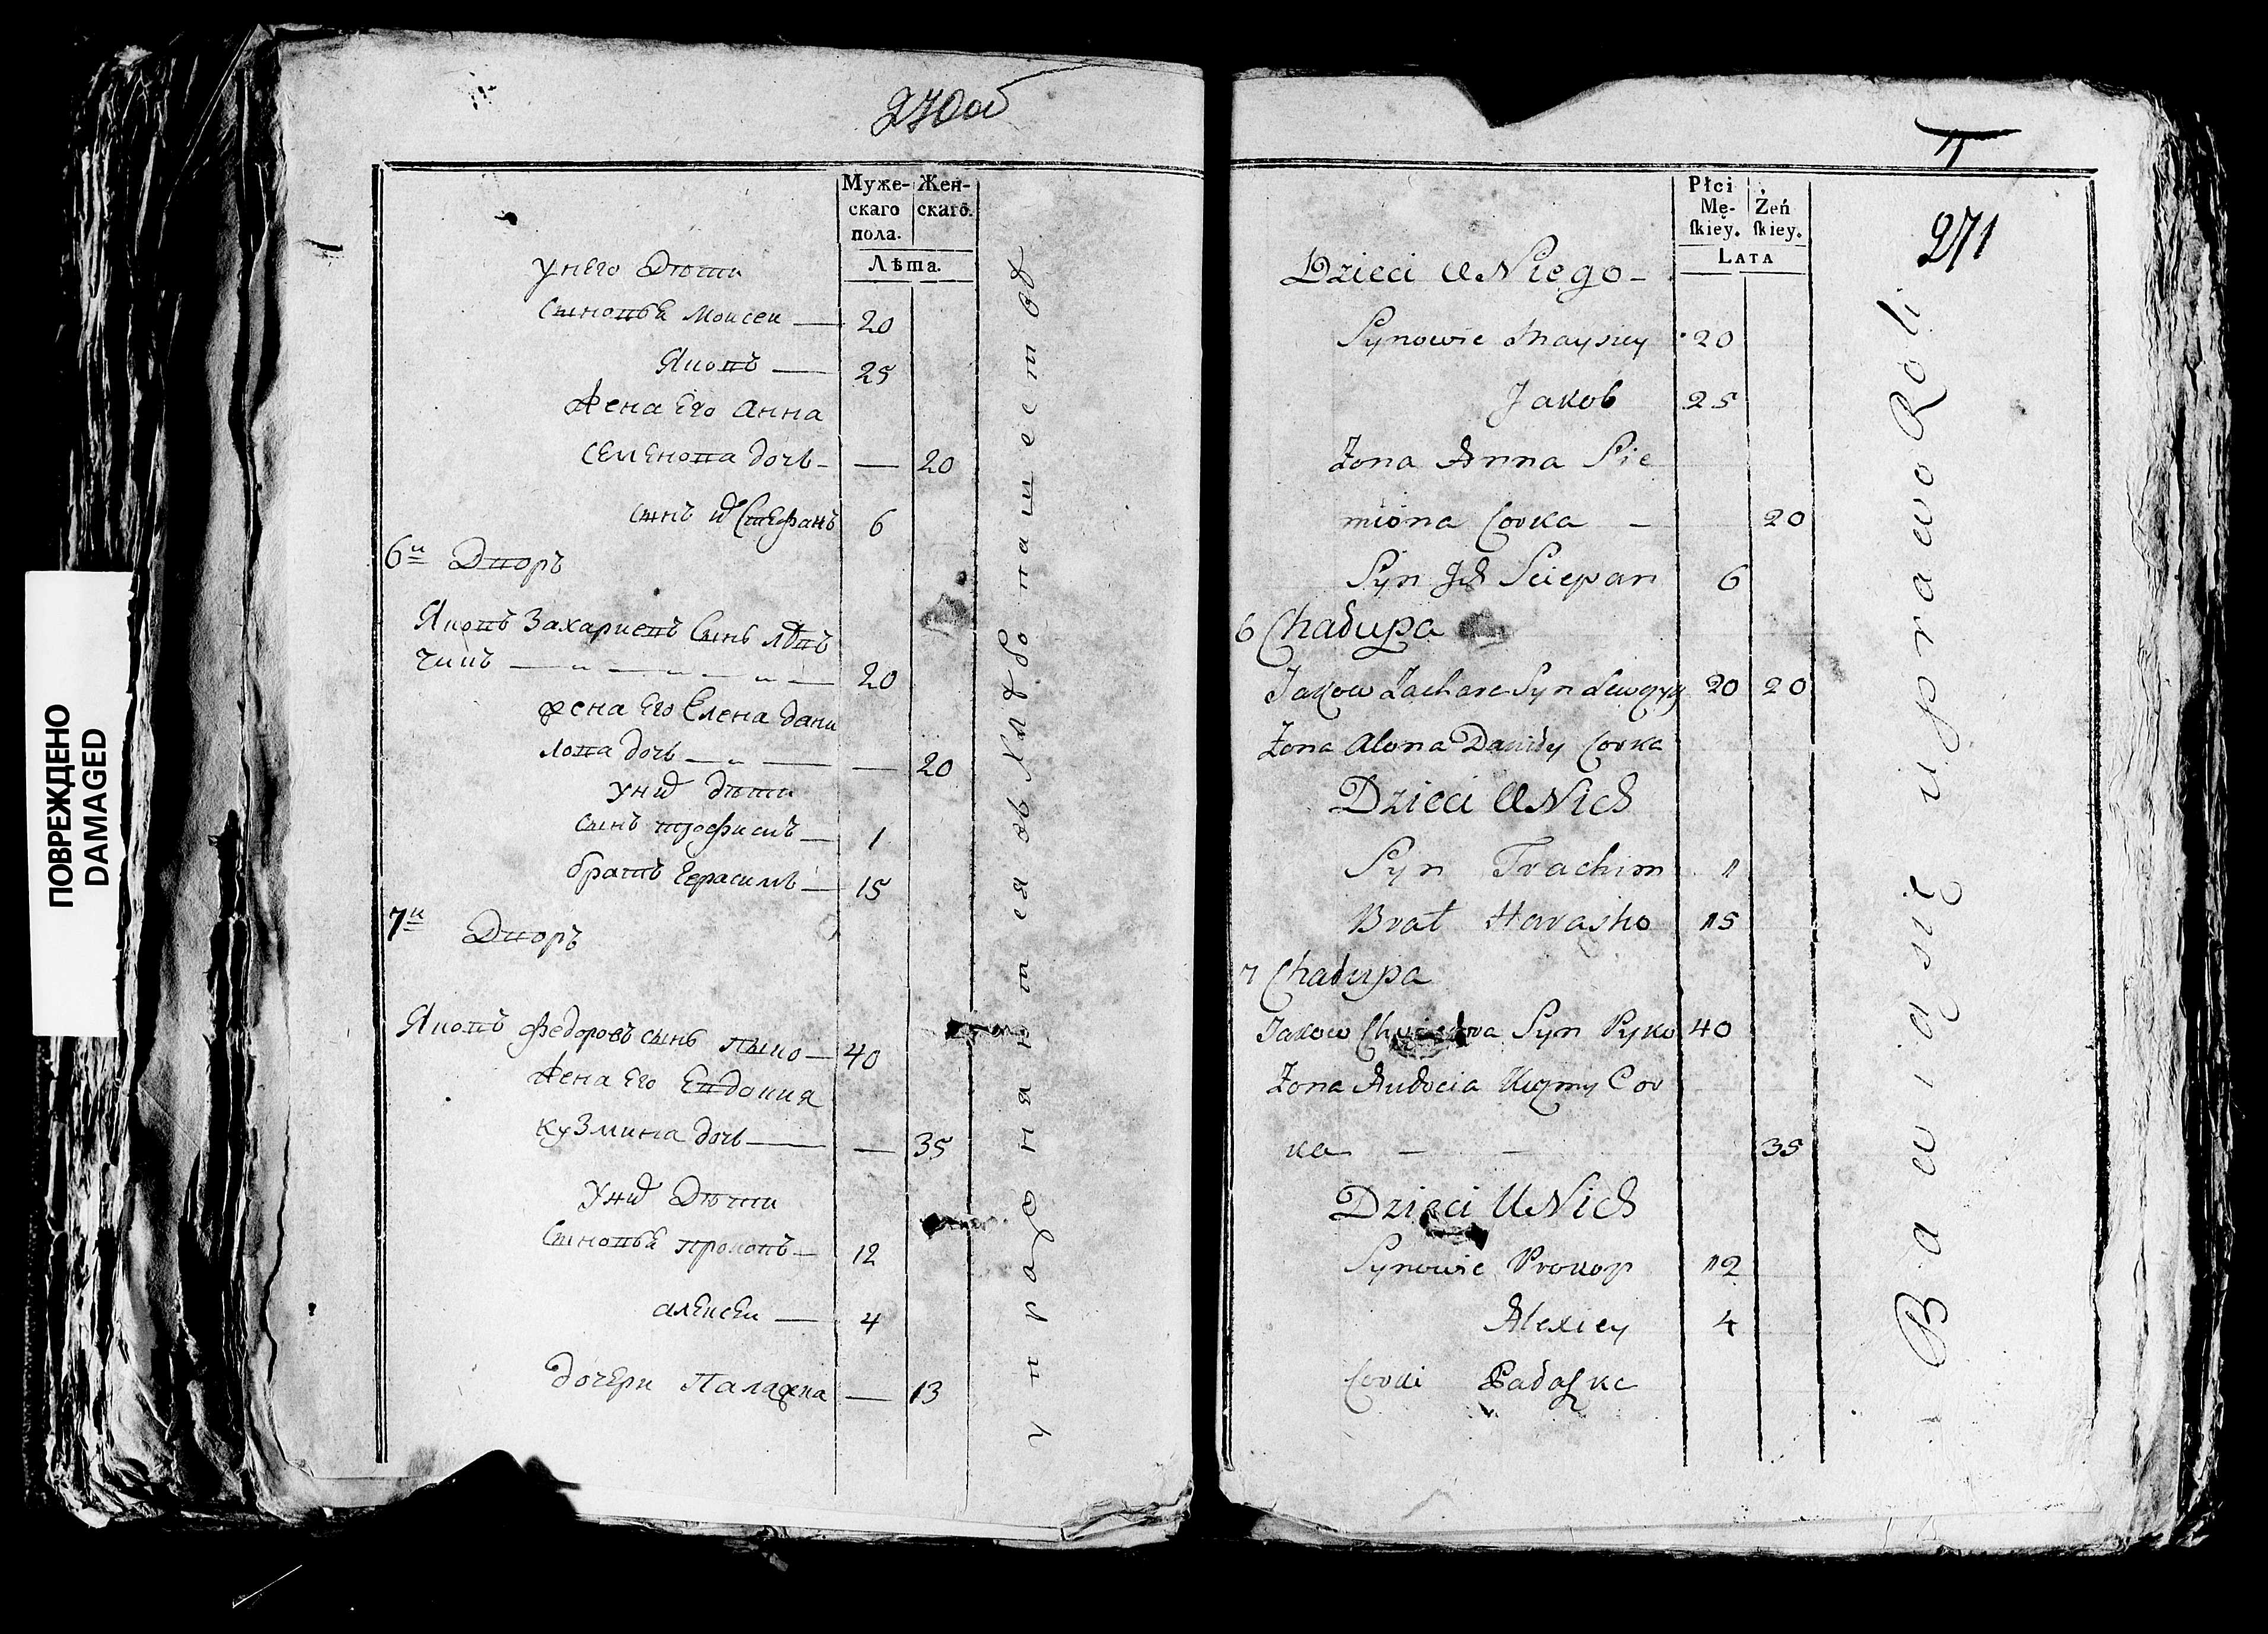 ПОВРЕЖДЕНО
DAMAGED
270об
Муже-
скаго
пола.
Жен-
скаго.
Лѣта.
у него Дѣти
Сыновья Моисеи — 20
Яковъ — 25
Жена Его Анна
Семенова дочь — — 20
сынъ их Стефанъ 6
6й Дворъ
Яковъ Захариевъ Сынъ Лѣв
чикъ — 20
Жена Его Елена дани
лова дочь — — 20
у них дѣти
сынъ трофимъ — 1
братъ Герасимъ — 15
7й Дворъ
Яковъ Федоровъ сынъ пыко — 40
Жена Его Евдокия
кузмина дочь — — 35
У них Дѣти
Сыновья прокопъ — 12
алексеи — 4
дочери Палажка — 13
упражняются въ хлѣбопашествѣ
Płci
Mę-
skiey.
Żeń
skiey.
LATA
271
Dzieci u Niego -
Synowie Maysiey 20
Jakob 25
Zona Anna Sie
miona Corka — 20
Syn Jch Sciepan 6
6 Chadupa
Jakow Zachare Syn Lewczyk 20 20
Zona Alona Daniły Corka
Dzieci u Nich
Syn Trachim 1
Brat Harasko 15
7 Chadupa
Jakow Syn Pyko 40
Zona Audocia Kuzmy Cor
ka — — 35
Dzieci u Nich
Synowie Prokop 12
Alexiey 4
Corki Padaszka
Bawią się uprawo Roli